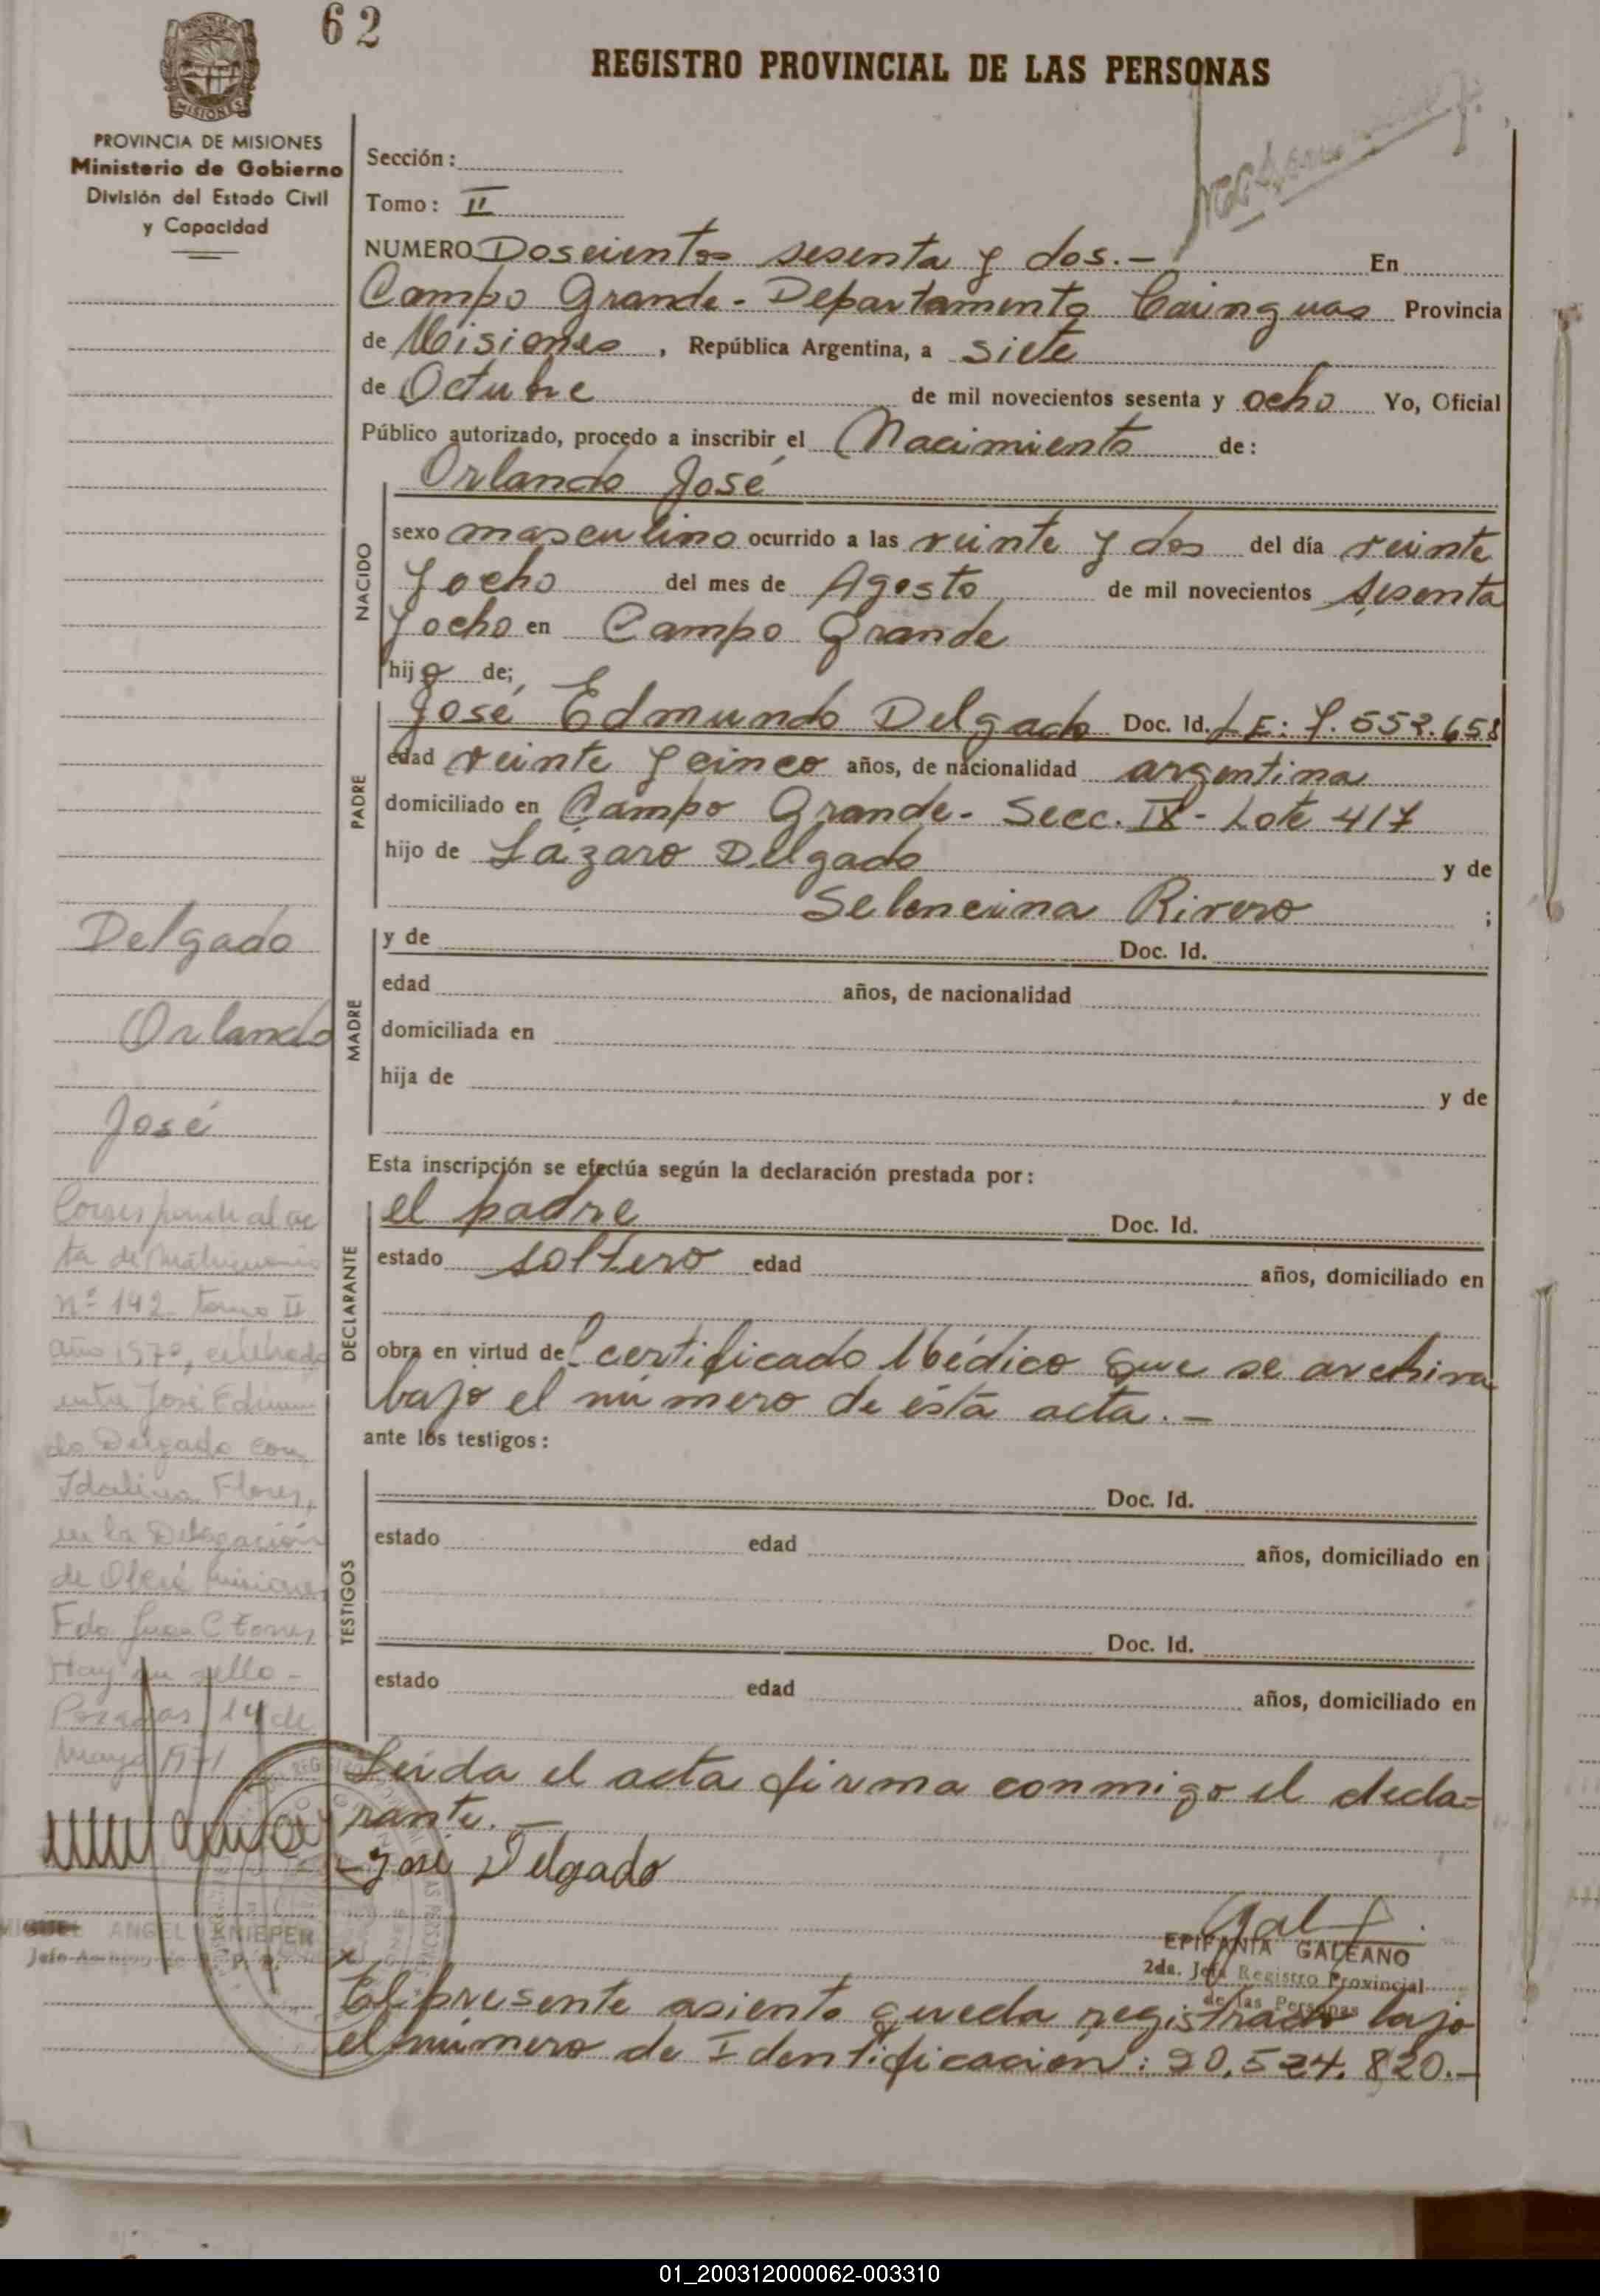 62
REGISTRO PROVINCIAL DE LAS PERSONAS
MISIONES
PROVINCIA DE MISIONES
Ministerio de Gobierno
División del Estado Civil
y Capacidad
Sección:
Tomo: II
NUMERO Doscientos sesenta y dos.- En
Campo Grande- Departamento Cainguas Provincia
de Misiones, República Argentina, a siete
de Octubre de mil novecientos sesenta y ocho Yo, Oficial
Público autorizado, procedo a inscribir el Nacimiento de:
Orlando José
NACIDO
sexo masculino ocurrido a las veinte y dos del día veinte
y ocho del mes de Agosto de mil novecientos sesenta
y ocho en Campo Grande
hijo de;
PADRE
José Edmundo Delgado Doc. Id. L.E: 7.553.658
edad veinte y cinco años, de nacionalidad argentina
domiciliado en Campo Grande- Secc. IX- Lote 417
hijo de Lázaro Delgado y de
Selencina Rivero ;
MADRE
y de Doc. Id.
edad años, de nacionalidad
domiciliada en
hija de y de
Esta inscripción se efectúa según la declaración prestada por:
DECLARANTE
el padre Doc. Id.
estado soltero edad años, domiciliado en
obra en virtud del certificado Médico que se archiva
bajo el número de ésta acta.-
ante los testigos:
TESTIGOS
Doc. Id.
estado edad años, domiciliado en
Doc. Id.
estado edad años, domiciliado en
Leída el acta firma conmigo el decla=
rante.-
José Delgado
EPIFANIA GALEANO
2da. Jefa Registro Provincial
de las Personas
El presente asiento queda registrado bajo
el número de Identificación: 20.524.820.-
Delgado
Orlando
José
Corresponde al ac
ta de Matrimonio
nº 142 tomo II
año 1970, celebrado
entre José Edmun
do Delgado con
Idalina Flores,
en la Delegación
de Oberá Misiones
Fdo Juan C Torres
Hay un sello-
Posadas 14 de
Mayo 1971
MIGUEL ANGEL KNIEPER
01_200312000062-003310